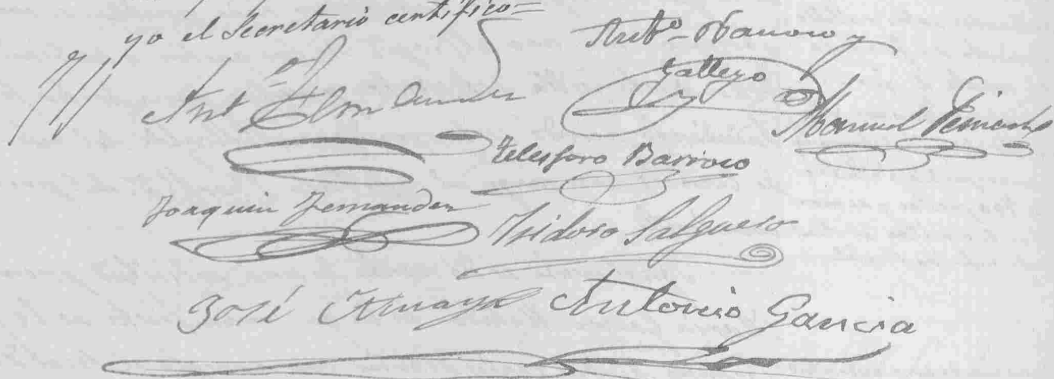 yo el Secretario certifico=
Antº Navarro y
Gallego
Ant
Manuel
Telesforo Barroso
Joaquin Fernandez
Isidoro Salguero
José Amaya Antonio Garicia